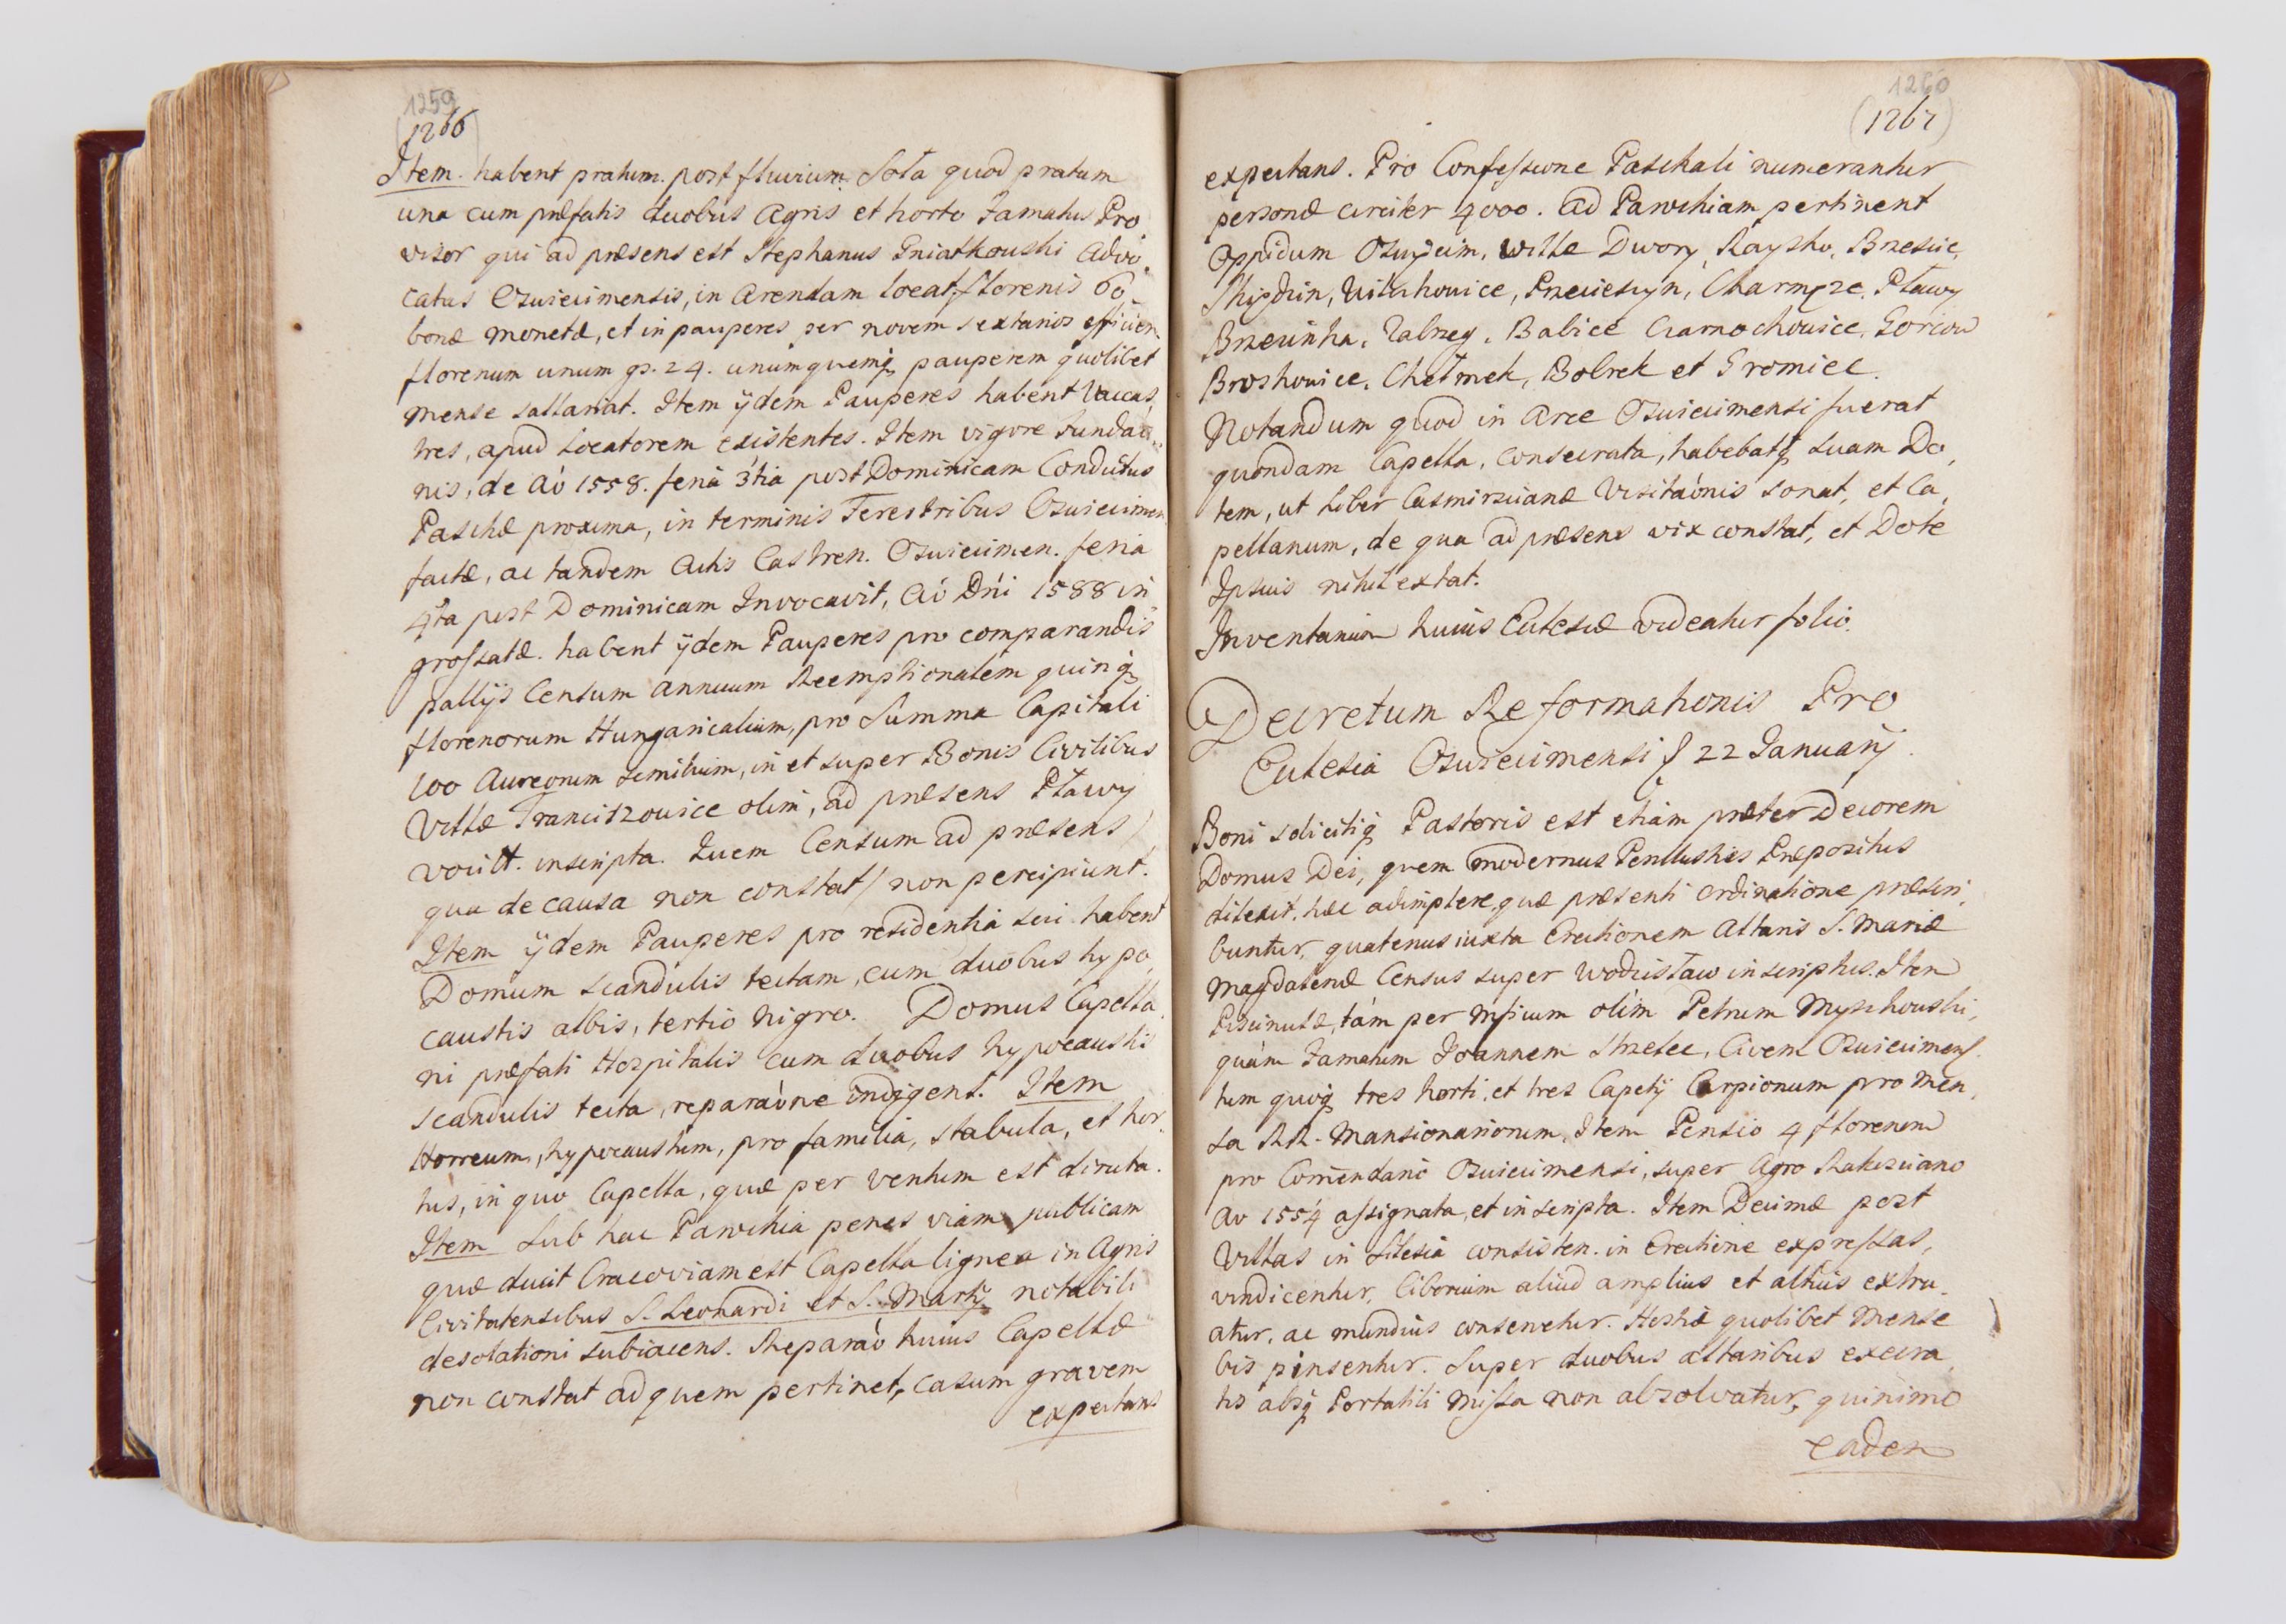 1259
(1266)
Item. habent pratum. post fluvium Soła quod pratum
una cum præfatis duobus Agris et horto Famatus Pro,
visor qui ad præsens est Stephanus Gniatkouski Advo,
catus Oswiecimensis, in Arendam locat florenis 60,
bonæ monetæ, et in pauperes per novem sextarios efficien.
florenum unum gr. 24. unumquemq pauperem quolibet
mense sallariat. Item ÿdem Pauperes habent Vaccas,
tres, apud Locatorem existentes. Item vigore Fundaō,,
nis, de Aō 1558. feriâ 3tia post Dominicam Conductus
Paschæ proxima, in terminis Terestribus Oswiecimen
factæ, ac tandem Actis Castren. Oswiecimen. feria
4ta post Dominicam Invocavit, Aō Dni 1588 in
grossatæ. habent ÿdem Pauperes pro comparandis
pallÿs Censum annuum Reemptionalem quinq
florenorum Hungaricalium, pro Summa Capitali
100 Aureorum similium, in et super Bonis Civilibus
Villæ Franciszovice olim, ad præsens Pławy
vocitt. inscripta. Quem Censum ad præsens /
qua de causa non constat / non percipiunt.
Item ÿdem Pauperes pro residentia sui habent
Domum scandulis tectam, cum duobus hypo,
caustis albis, tertio nigro. Domus Capella,
ni præfati Hospitalis cum duobus hypocaustis
scandulis tecta, reparaōne indigent. Item
Horreum, hypocaustum, pro familia, stabula, et hor,
tus, in quo Capella, quæ per ventum est diruta.
Item Sub hac Parochia penes viam publicam
quæ ducit Cracoviam est Capella lignea in Agris
Civitatensibus S. Leonardi et S. Mart. notabili
desolationi subiacens. Reparaō huius Capellæ
non constat ad quem pertinet, casum gravem
expectans
1260
(1267)
expectans. Pro Confessione Paschali numerantur
personæ circiter 4000. Ad Parochiam pertinent
Oppidum Oswiecim, villæ Dwory, Raysko, Brzescie,
Skidzin, Wilchouice, Przeciesyn, Charmęze, Pławy
Brzezinka, Zabrzeg, Babice Czarnochouice, Gorzow
Broshouice, Chełmek, Bobrek et Gromiec.
Notandum quod in Arce Oswiecimensi fuerat
quondam Capella, consecrata, habebatq suam Do,
tem, ut Liber Casmirscianæ Visitaōnis sonat, et Ca,
pellanum, de qua ad præsens vix constat, et Dote
Ipsius nihil extat.
Inventarium huius Ecclesiæ videatur folio.
Decretum Reformationis Pro
Ecclesia Oswiecimensi 22 Januarÿ.
Boni solicitiq Pastoris est etiam præter Decorem
Domus Dei, quem modernus Præpositus
dilexit, hæc adimplere, quæ præsenti Ordinatione præscri,
buntur, quatenus iuxta Erectionem Altaris S. Mariæ
Magdalenæ Census super Wodzisław inscriptus. Item
Piscinulæ, tàm per olim Petrum Myszkouski,
quàm Famatum Joannem Strzelec, Civem Oswiecimens.
tum quoq tres horti, et tres Capetÿ Carpionum pro Men,
sa RR. Mansionariorum, Item Pensio 4 florenorum
pro Comendario Oswiecimensi, super Agro
Aō 1554 assignata, et inscripta. Item Decimæ post
Villas in Silesia consisten. in Erectione expressas,
vindicentur, Ciborium aliud amplius et altius extru,
atur, ac mundius conservetur. Hostiæ quolibet Mense
bis pinsentur. Super duobus altaribus execra,
tis absq Portatili missa non absolvatur, quinimo
eadem